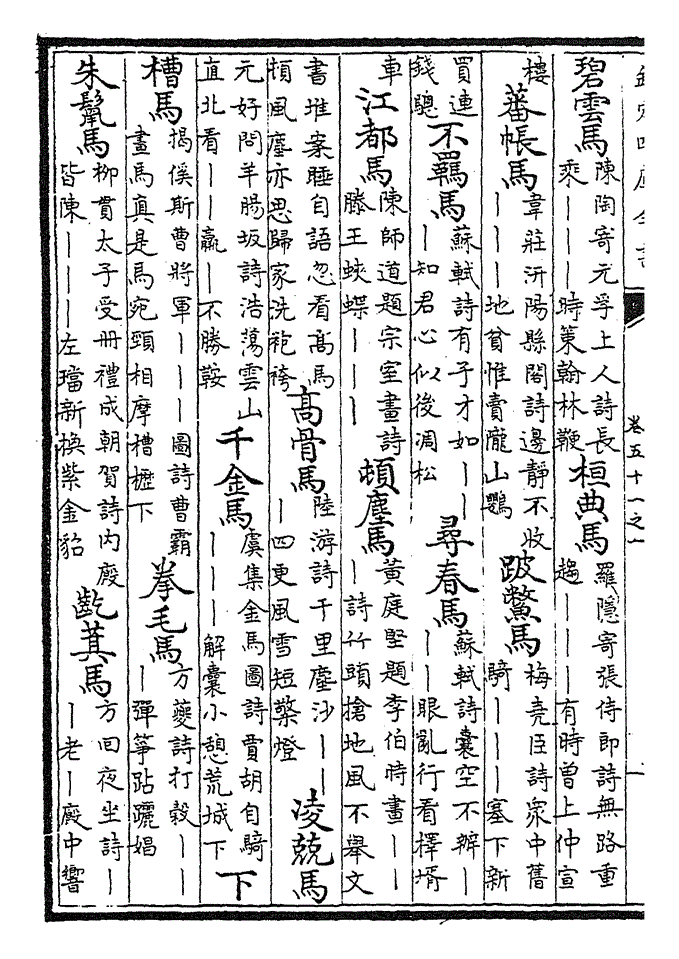 欽定四庫全書
卷五十一之一
碧雲馬陳陶寄元孚上人詩長乘｜｜｜時策翰林鞭桓典馬羅隱寄張侍郎詩無路重趨｜｜｜有時曾上仲宣
樓蕃帳馬韋莊汧陽縣閣詩邊靜不收｜｜｜地貧惟賣隴山鸚跛鱉馬梅堯臣詩眾中舊騎｜｜｜塞下新
買連錢驄不羈馬蘇軾詩有子才如｜｜｜知君心似後凋松尋春馬蘇軾詩囊空不辦｜｜｜眼亂行看擇壻
車江都馬陳師道題宗室畫詩滕王蛺蝶｜｜｜頓塵馬黃庭堅題李伯時畫｜｜｜詩竹頭搶地風不舉文
書堆案睡自語忽看高馬頓風塵亦思歸家洗袍袴高骨馬陸游詩千里塵沙｜｜｜四更風雪短檠燈凌兢馬
元好問羊腸坂詩浩蕩雲山直北看｜｜羸｜不勝鞍千金馬虞集金馬圖詩賈胡自騎｜｜｜解囊小憩荒城下下
槽馬揭傒斯曹將軍｜｜｜圖詩曹霸畫馬真是馬宛頸相摩槽櫪下拳毛馬方夔詩打穀｜｜｜彈箏跕躧娼
朱鬣馬柳貫太子受冊禮成朝賀詩內廄皆陳｜｜｜左璫新換紫金貂齕萁馬方回夜坐詩｜｜老｜廄中響